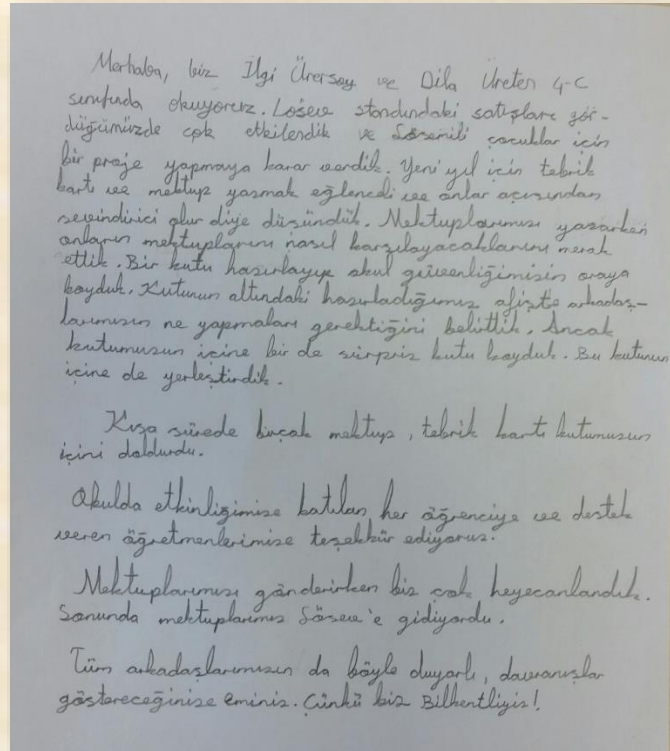 Merhaba, biz İlgi Ürersoy ve Dila Üreten 4-C
sınıfında okuyoruz. Lösev standındaki satışları gör-
düğümüzde çok etkilendik ve Lösemili çocuklar için
bir proje yapmaya karar verdik. Yeni yıl için tebrik
kartı ve mektup yazmak eğlenceli ve onlar açısından
sevindirici olur diye düşündük. Mektuplarımızı yazarken
onların mektuplarını nasıl karşılayacaklarını merak
ettik. Bir kutu hazırlayıp okul güvenliğimizin oraya
koyduk. Kutunun altındaki hazırladığımız afişte arkadaş-
larımızın ne yapmaları gerektiğini belittik. Ancak
kutumuzun içine bir de sürpriz kutu koyduk. Bu kutunun
içine de yerleştirdik.
Kısa sürede birçok mektup, tebrik kartı kutumuzun
içini doldurdu.
Okulda etkinliğimize katılan her öğrenciye ve destek
veren öğretmenlerimize teşekkür ediyoruz.
Mektuplarımızı gönderirken biz çok heyecanlandık.
Sonunda mektuplarımız Lösev'e gidiyordu.
Tüm arkadaşlarımızın da böyle duyarlı, davranışlar
göstereceğinize eminiz. Çünkü biz Bilkentliyiz!